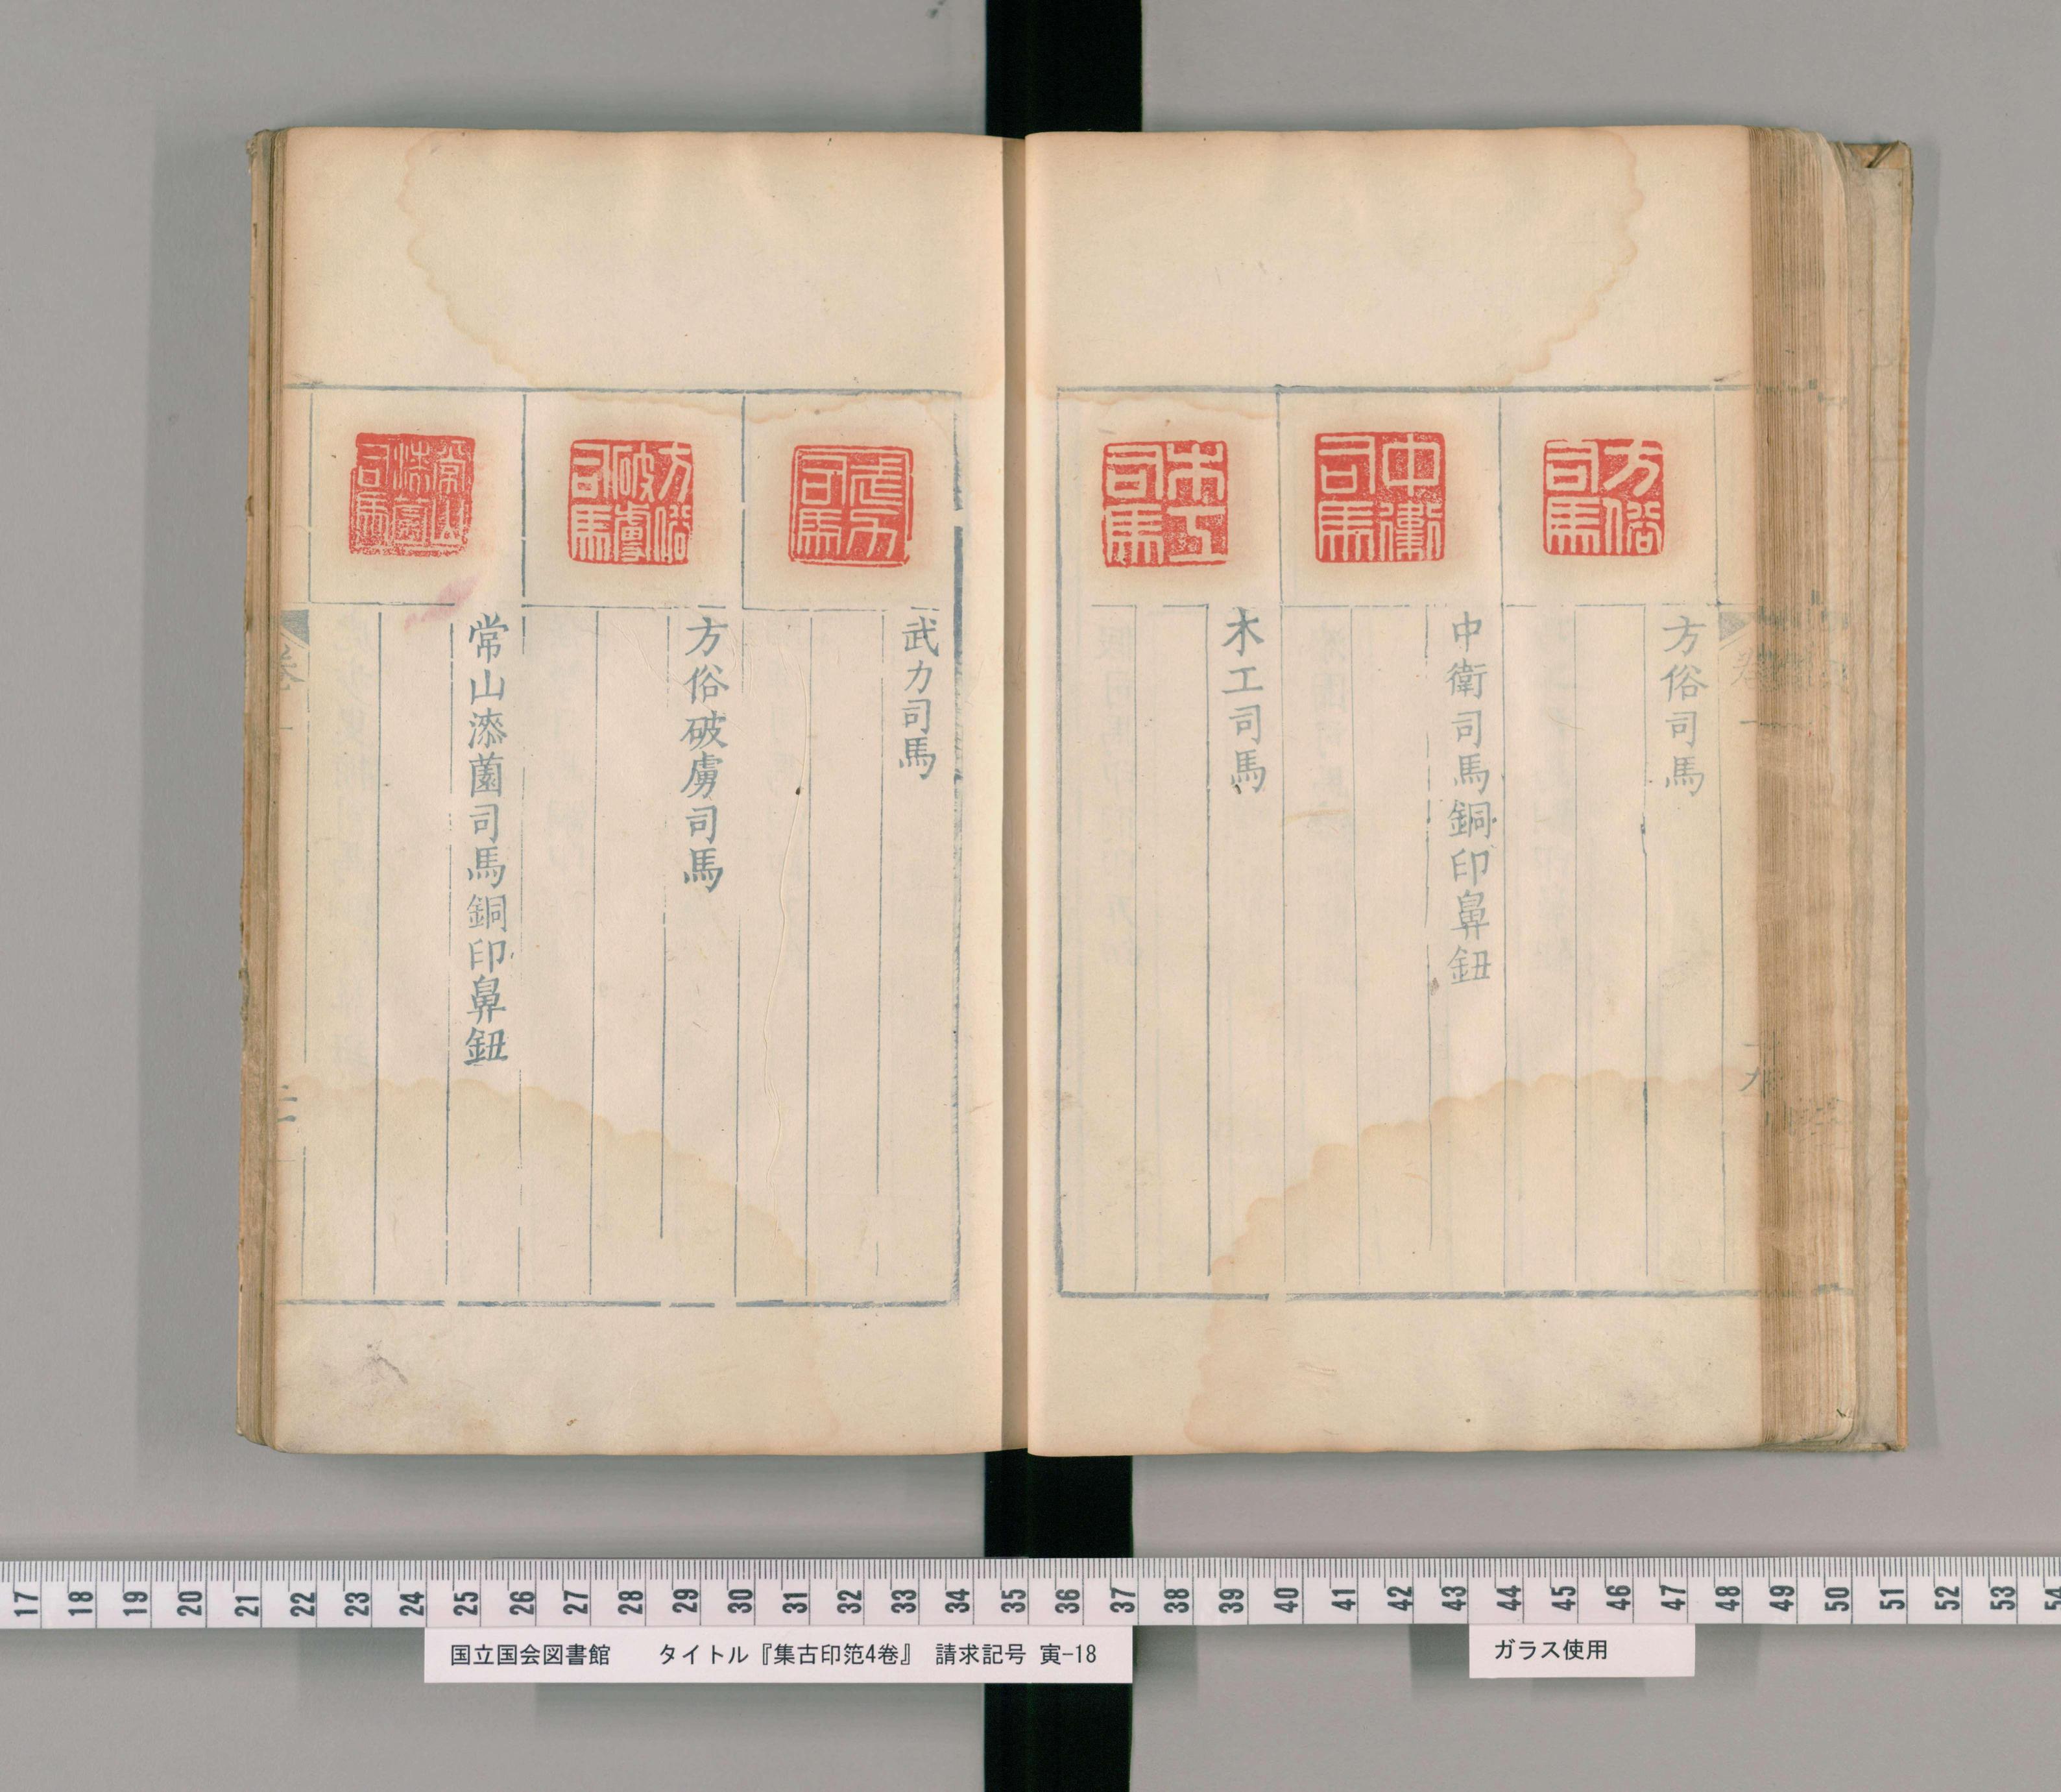 方俗司馬
中衛
司馬
木工
司馬
武力
司馬
方俗
破虜
司馬
常山
漆薗
司馬
方俗司馬
中衛司馬銅印鼻鈕
木工司馬
武力司馬
方俗破虜司馬
常山漆薗司馬銅印鼻鈕
卷一
十九
卷一
二十
17 18 19 20 21 22 23 24 25 26 27 28 29 30 31 32 33 34 35 36 37 38 39 40 41 42 43 44 45 46 47 48 49 50 51 52 53 54
国立国会図書館 タイトル『集古印笵4巻』 請求記号 寅-18
ガラス使用